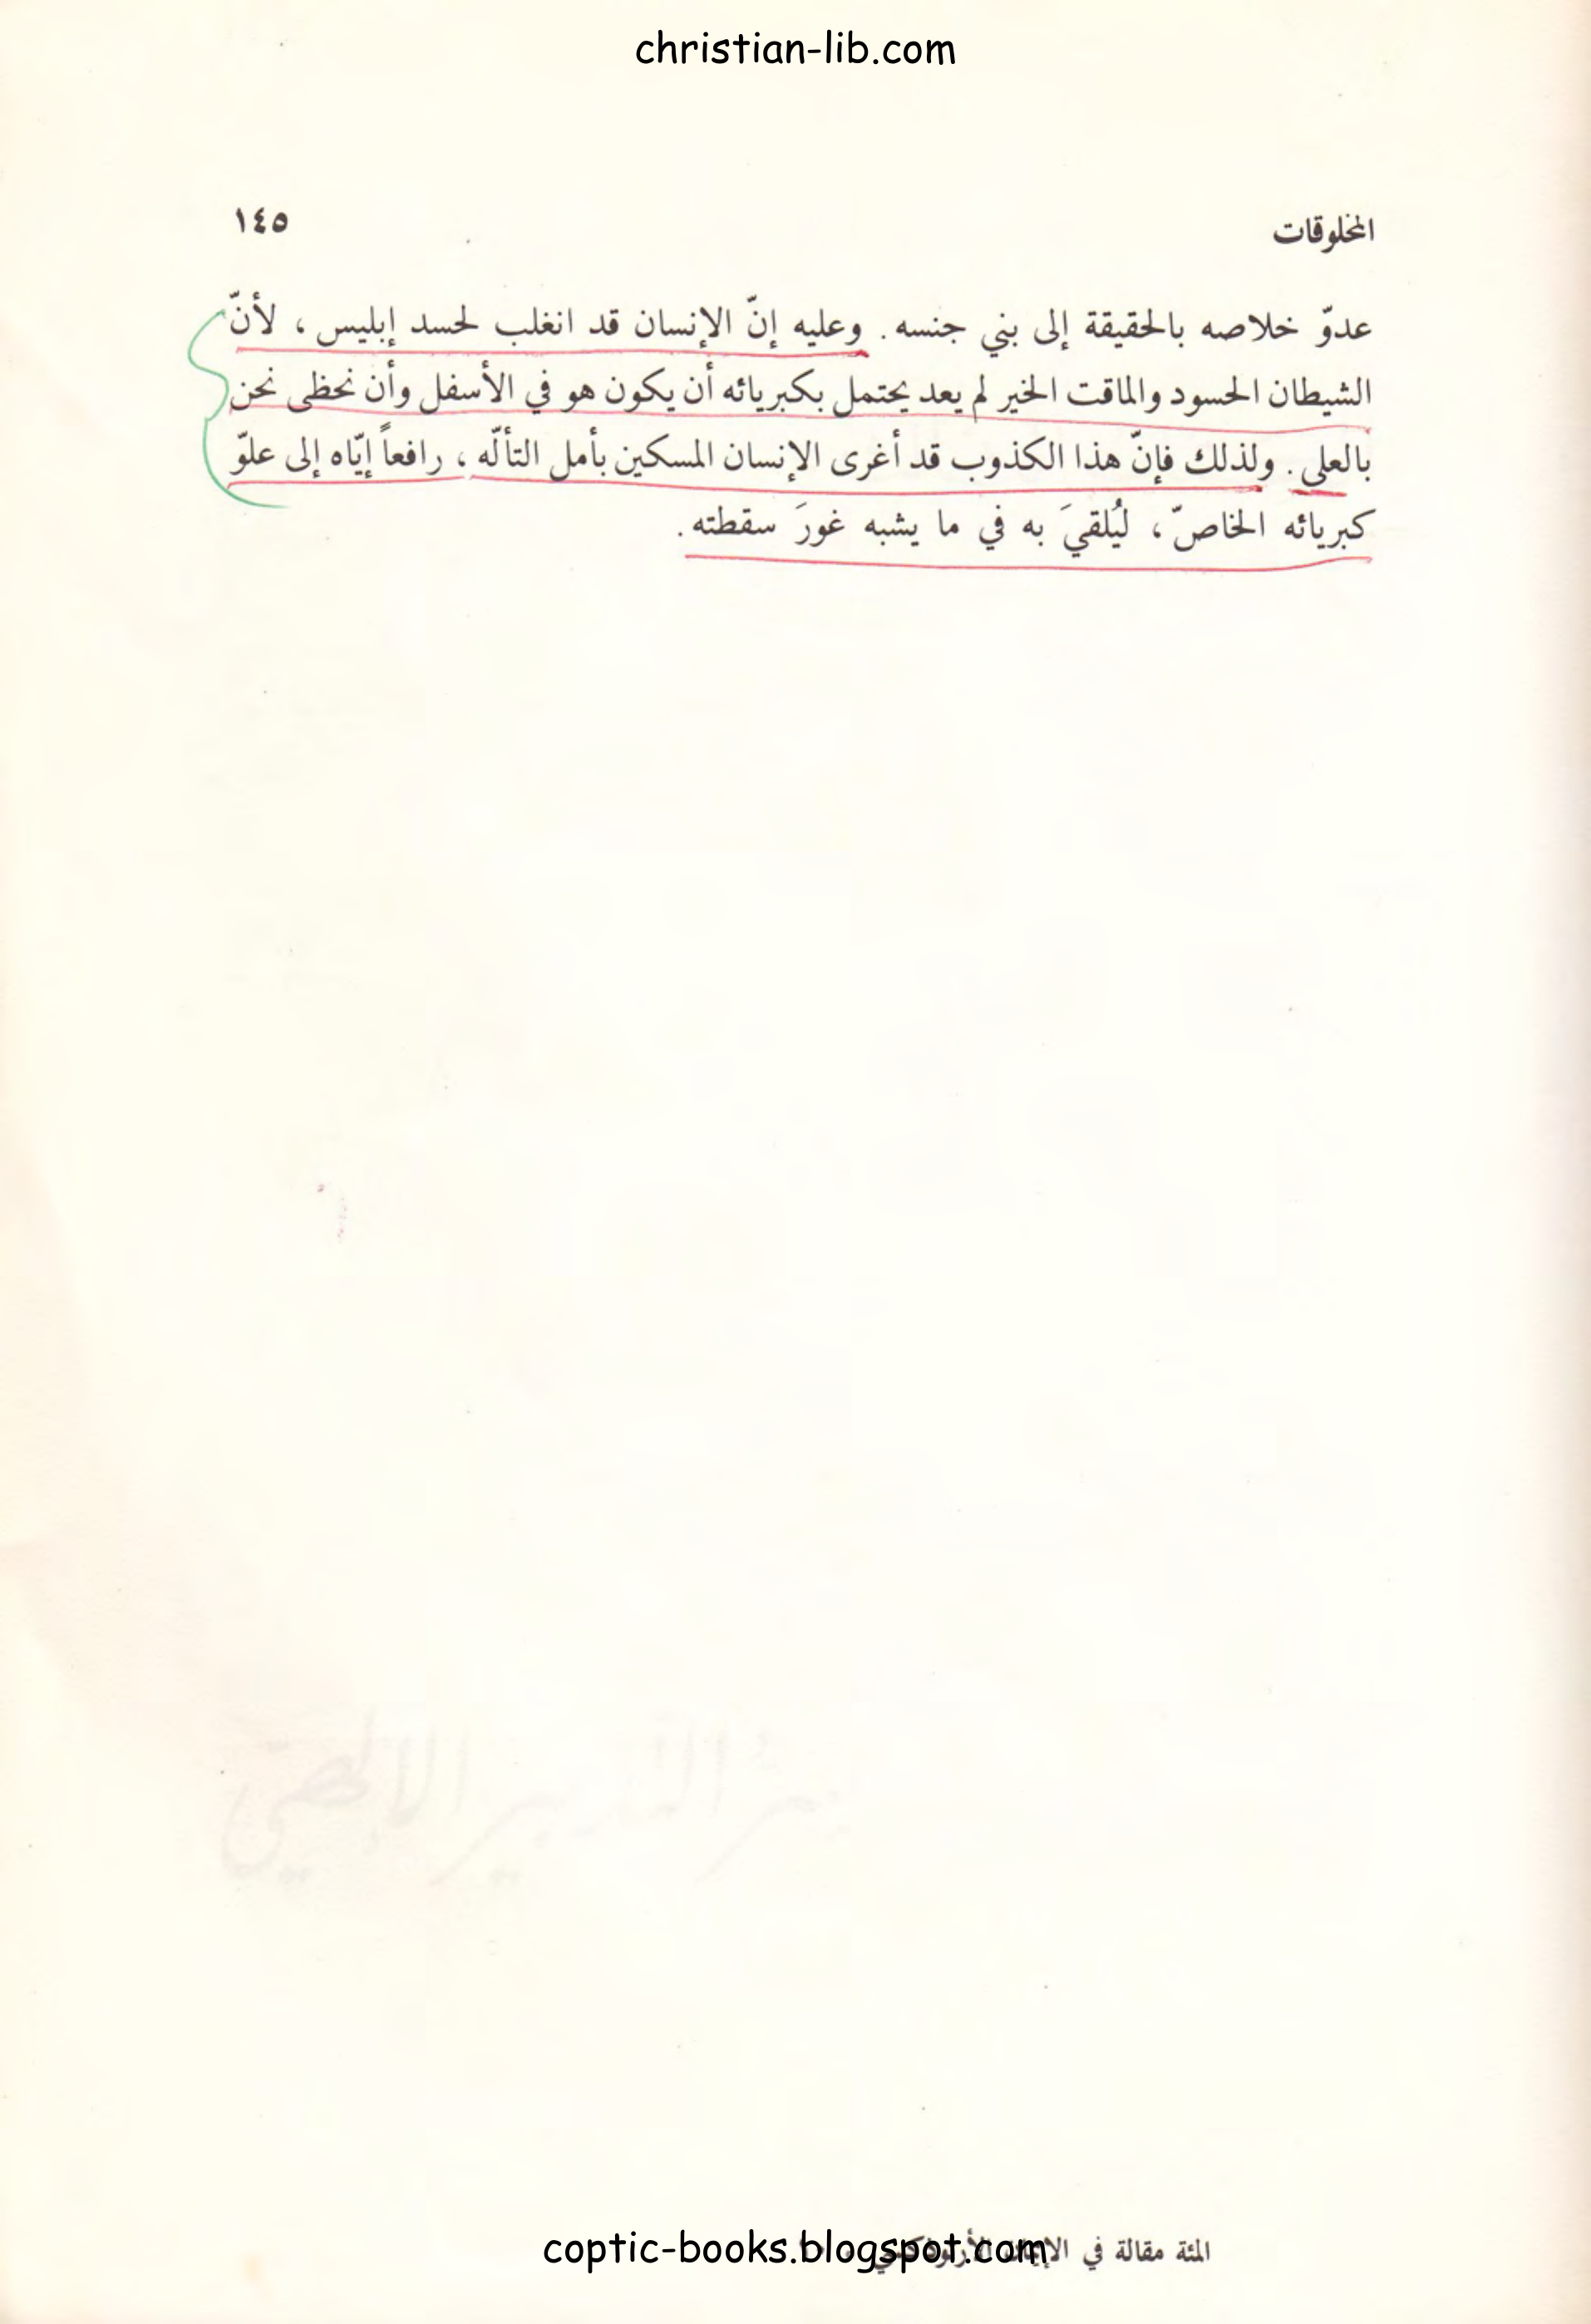 christian-lib.com
المخلوقات ١٤٥
عدوّ خلاصه بالحقيقة إلى بني جنسه. وعليه إنّ الإنسان قد انغلب لحسد إبليس، لأنّ
الشيطان الحسود والماقت الخير لم يعد يحتمل بكبريائه أن يكون هو في الأسفل وأن نحظى نحن
بالعلى. ولذلك فإنّ هذا الكذوب قد أغرى الإنسان المسكين بأمل التألّه، رافعاً إيّاه إلى علوّ
كبريائه الخاصّ، ليُلقيَ به في ما يشبه غورَ سقطته.
المئة مقالة في
coptic-books.blogspot.com